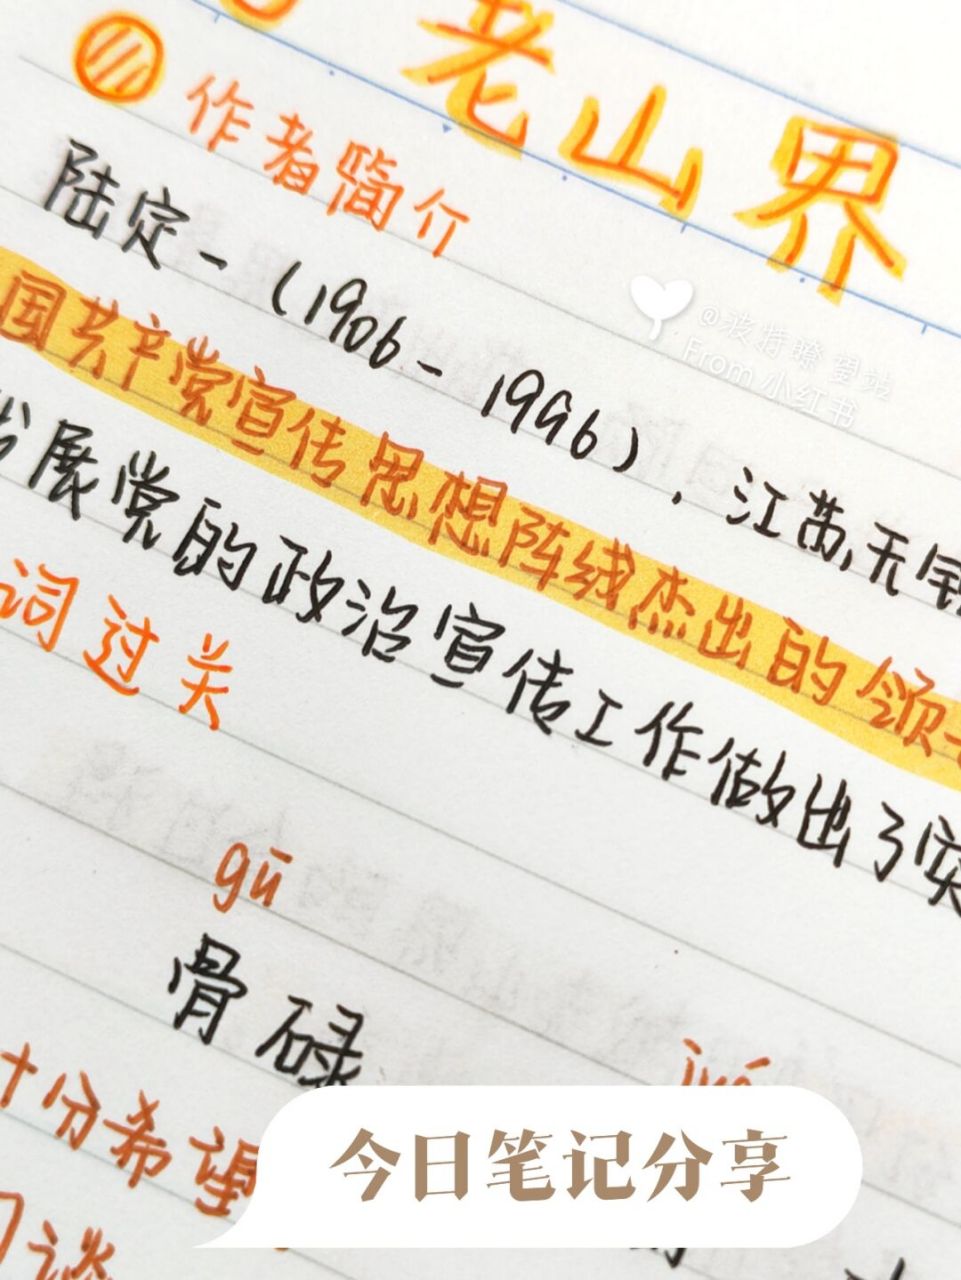 老山界
作者简介
陆定一(1906-1996),江苏无锡
国共产党宣传思想阵线杰出的领
发展党的政治宣传工作做出了突
词过关
gū
骨碌
十分希望
谈
@波特瞭望站
From 小红书
今日笔记分享